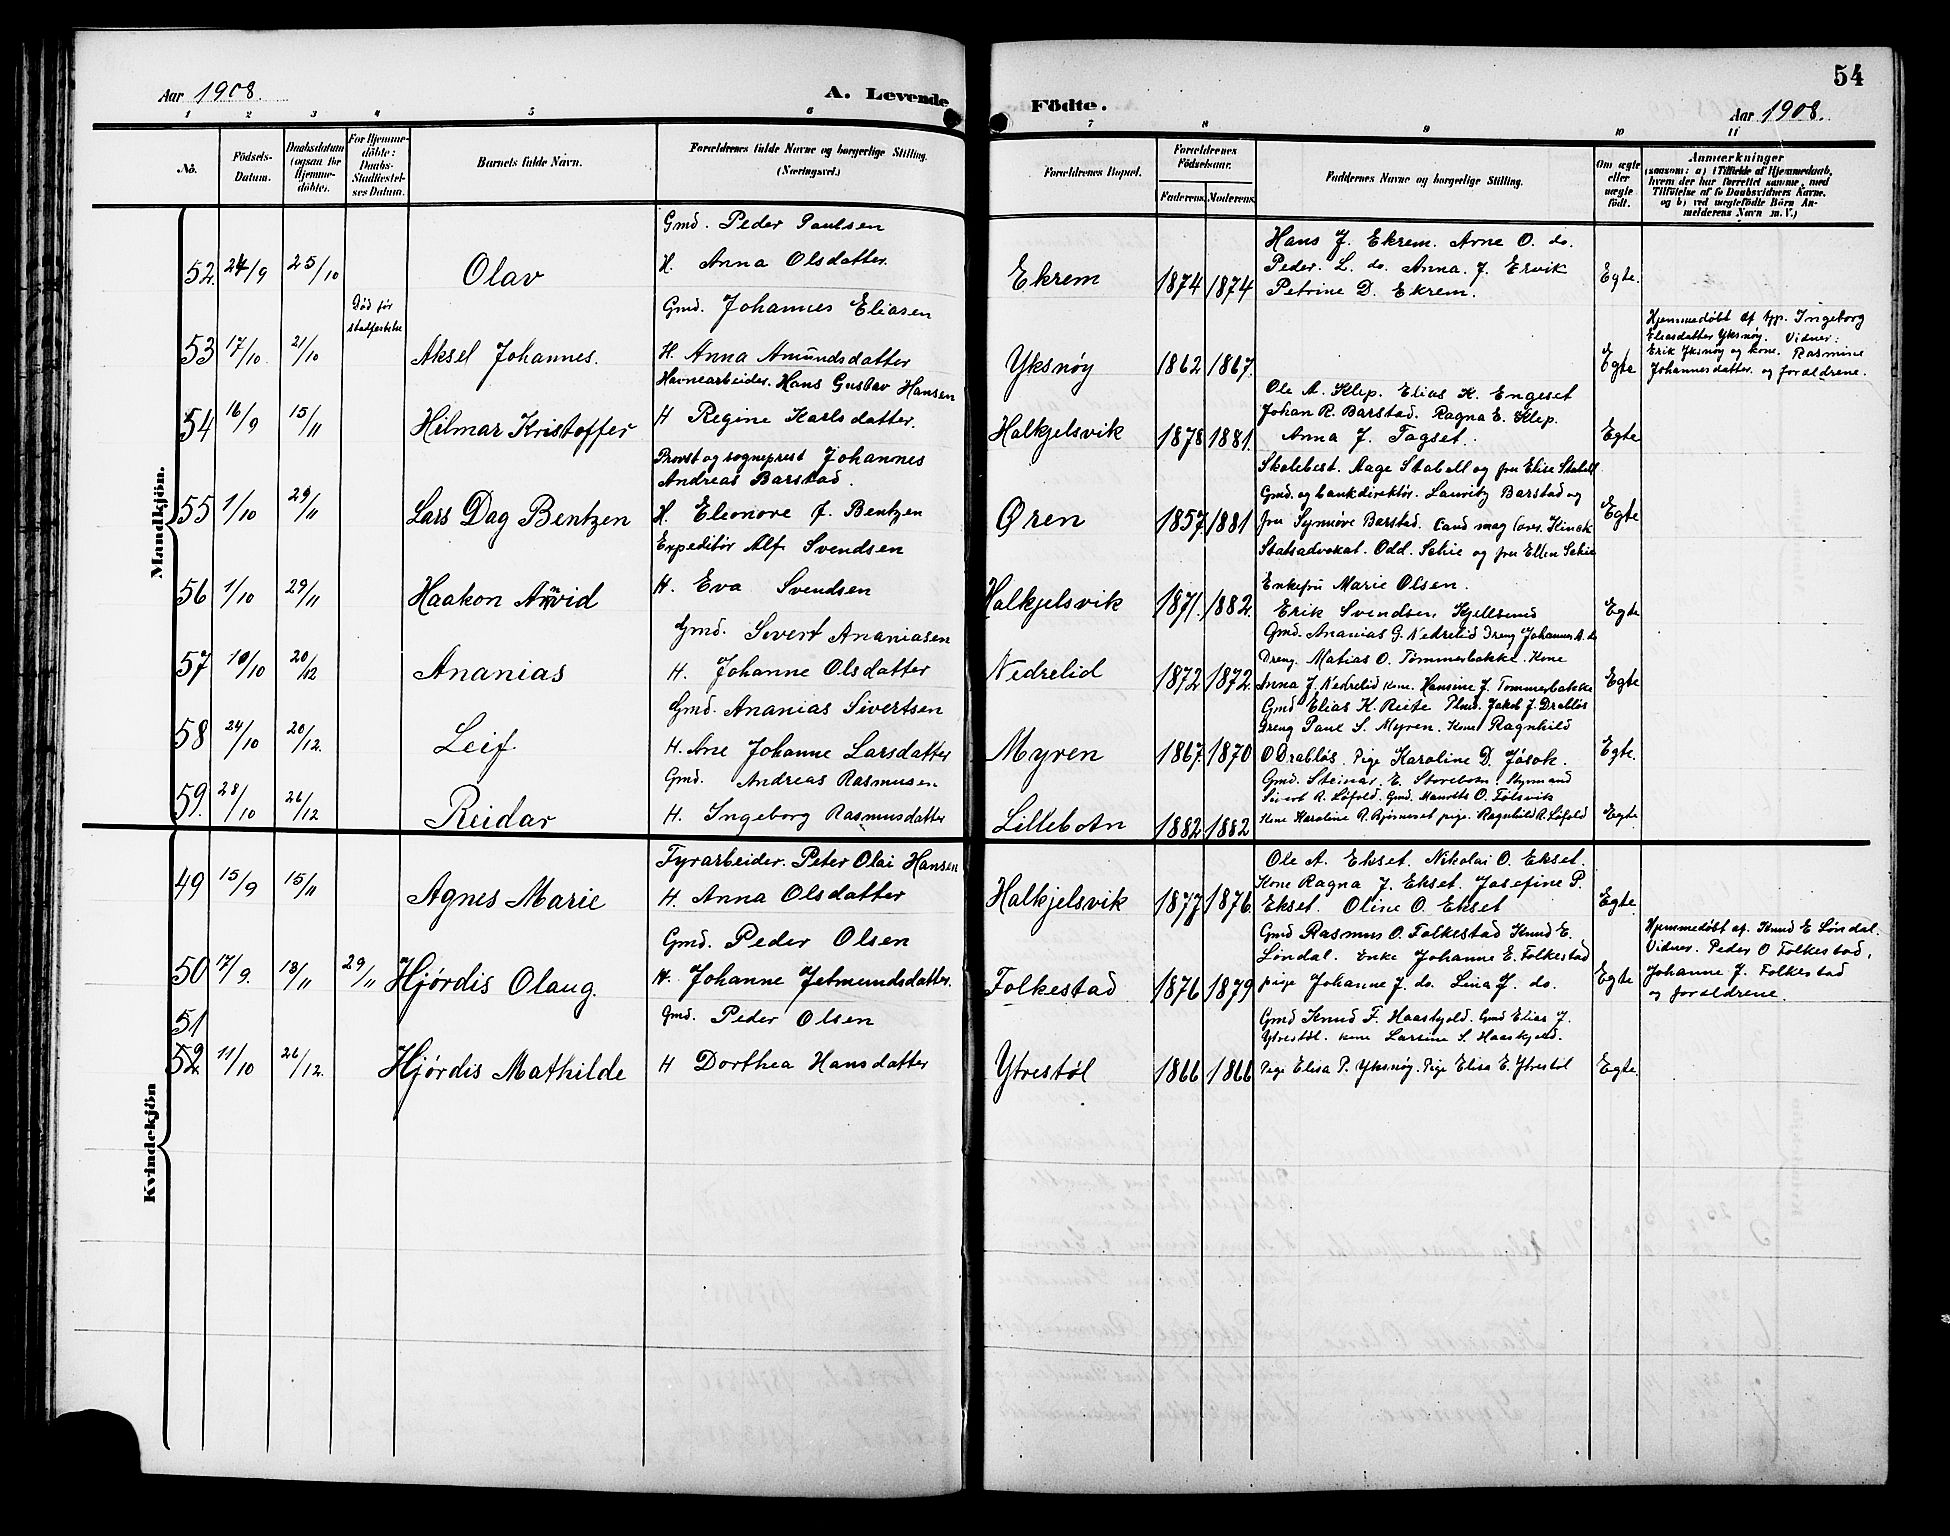 54
Aar 1908.
A. Levende
Födte.
Aar 1908.
1 2 3 4 5 6 7 8 9 10 11
No.
Födsels-Datum.
Daabsdatum (ogsaa for Hjemmedöbte).
For Hjemmedöbte: Daabs-Stadfæstelses Datum.
Barnets fulde Navn.
Forældrenes fulde Navne og borgerlige Stilling. (Næringsvei.)
Forældrenes Bopæl.
Forældrenes Födselsaar.
Faderens. Moderens.
Faddernes Navne og borgerlige Stilling.
Om ægte eller uægte födt.
Anmærkninger
(saasom: a) i Tilfælde af Hjemmedaab, hvem der har forrettet samme, med Tilföielse af to Daabsvidners Navne, og b) ved uægtefödte Börn Anmelderens Navn m. V.)
Mandkjön.
52. 24/9 25/10 Olav
Gmd. Peder Paulsen
H. Anna Olsdatter
Ekrem 1874 1874
Hans J. Ekrem. Arne O. do.
Peder. L. do. Anna. J. Ervik
Petrine D. Ekrem.
Egte.
53 17/10. 21/10
Død før
stadfestelse
Aksel Johannes.
Gmd. Johannes Eliasen
H. Anna Amundsdatter
Yksnøy 1862 1867.
Egte
Hjemmedøbt af Ingeborg
Eliasdatter Yksnøy. Vidner:
Erik Yksnøy og kone. Rasmine
Johannesdatter. og forældrene.
54 16/9 15/11 Hilmar Kristoffer
Havnearbeider. Hans Gustav Hansen
H Regine Karlsdatter.
Halkjelsvik 1878 1881.
Ole A. Klep. Elias K. Engeset
Johan R. Barstad. Ragna E. Klep.
Anna J. Fagset.
Egte
55 1/10 29/11 Lars Dag Bentzen
Provst og sogneprest Johannes
Andreas Barstad.
H. Eleonore f. Bentzen
Øren 1857. 1881
Skolebest. Aage Stabell og fru Elise Stabell
Gmd. og bankdirektør. Lauritz Barstad og
fru Synnøve Barstad. Cand mag Lars. Kinck
Statsadvokat. Odd. Schie og fru Ellen Schie
Egte
56 1/10 29/11 Haakon Arnvid
Expeditør Alf Svendsen
H. Eva Svendsen
Halkjelsvik 1871. 1882.
Enkefru Marie Olsen.
Erik Svendsen, Kjellsund
Egte
57 10/10 20/12 Ananias
Gmd. Sivert Ananiasen
H. Johanne Olsdatter
Nedrelid 1872 1872.
Gmd. Ananias G. Nedrelid Dreng Johannes A. do
Dreng. Matias O. Tømmerbakke. Kone
Anna J. Nedrelid kone. Hansine J. Tømmerbakke
Egte
58 24/10 20/12. Leif
Gmd. Ananias Sivertsen
H. Ane Johanne Larsdatter
Myren 1867. 1870
Gmd Elias K. Reite Jakob J. Drabløs
Dreng Paul S. Myren. Kone Ragnhild
O Drabløs. Pige Karoline D. Jøsok.
Egte.
59. 28/10 26/12 Reidar
Gmd. Andreas Rasmusen
H. Ingeborg Rasmusdatter
Lillebotn 1882 1882
Gmd. Steinar E. Storebotn. Styrmand
Sivert R. Løfold. Gmd. Maurits O. Følsvik
Kone Karoline R. Bjørneset pige. Ragnhild R. Løfold
Egte
Kvindekjön
49 15/9 15/11 Agnes Marie
Fyrarbeider. Peter Olai Hansen
H. Anna Olsdatter
Halkjelsvik 1877 1876
Ole A. Ekset. Nikolai O. Ekset.
Kone Ragna J. Ekset. Josefine P.
Ekset. Oline O. Ekset
Egte.
50 17/9. 18/11 29/11 Hjørdis Olaug.
Gmd. Peder Olsen
H. Johanne Jetmundsdatter
Folkestad 1876 1879
Gmd Rasmus O. Folkestad Knud E.
Løndal. Enke Johanne E. Folkestad
pige Johanne J. do. Lina J. do.
Egte
Hjemmedøbt af. Knud E Løndal.
Vidner. Peder O Folkestad,
Johanne J. Folkestad
og forældrene.
51
52 11/10 26/12. Hjørdis Mathilde
Gmd. Peder Olsen
H Dorthea Hansdatter
Ytrestøl 1866 1866
Gmd Knud F. Haaskjold. Gmd Elias J.
Ytrestøl. kone Larsine S. Haaskjold.
Pige Elisa P. Yksnøy. Pige Elisa E. Ytrestøl
Egte.